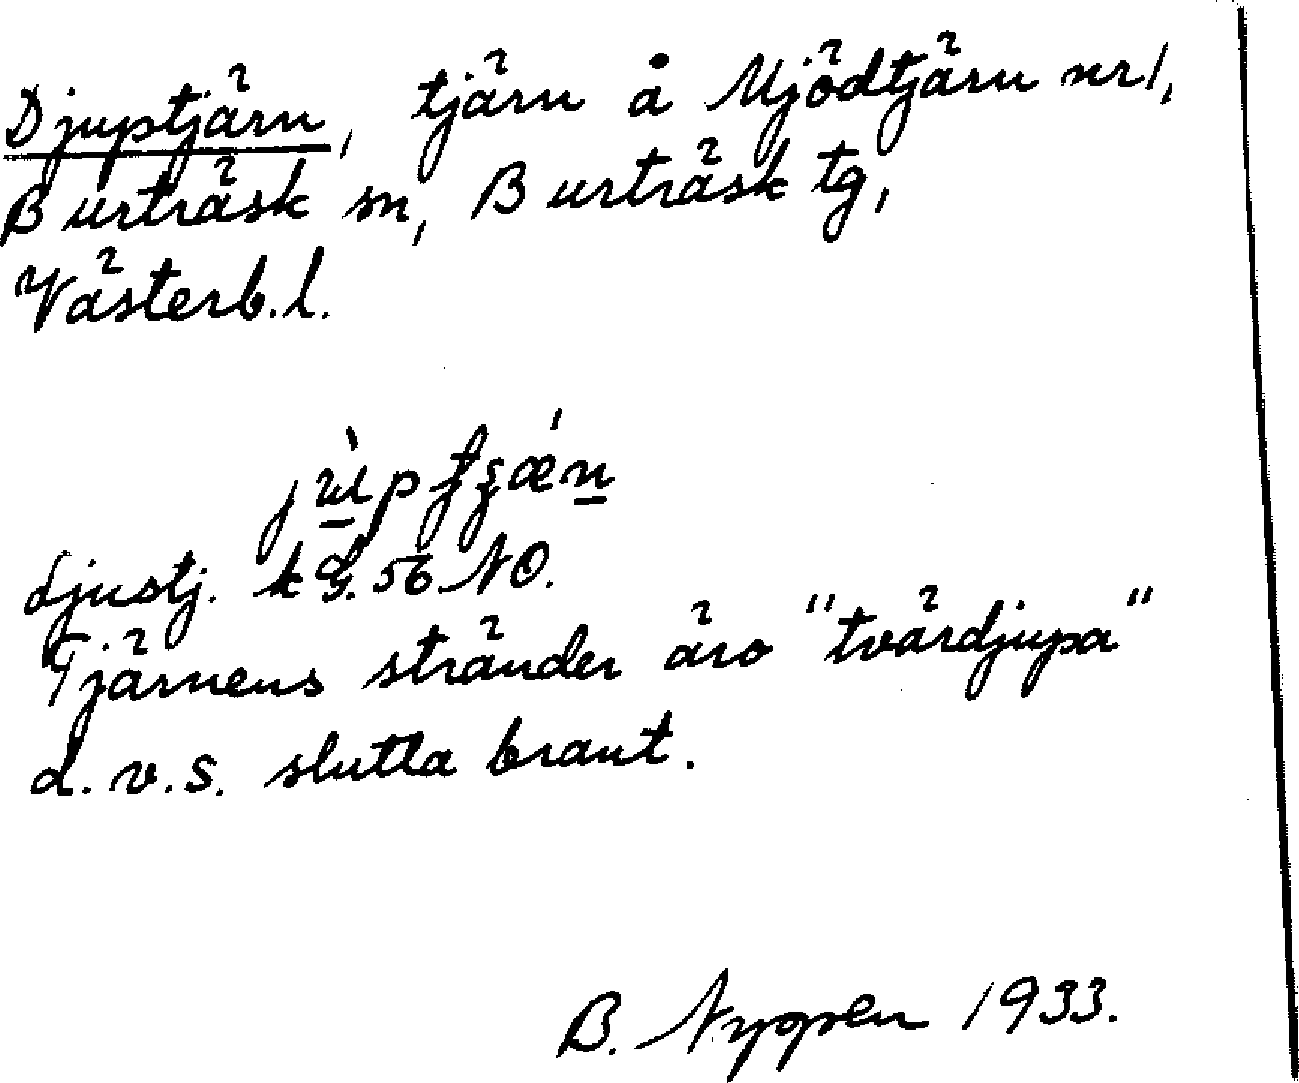 Djuptjärn, tjärn å Mjödtjärn nr 1,
Burträsk sn, Burträsk tg,
Västerb.l.
Djuptj. k g. 56 NO.
Tjärnens stränder äro "tvärdjupa"
d.v.s. slutta brant.
B. Nygren 1933.